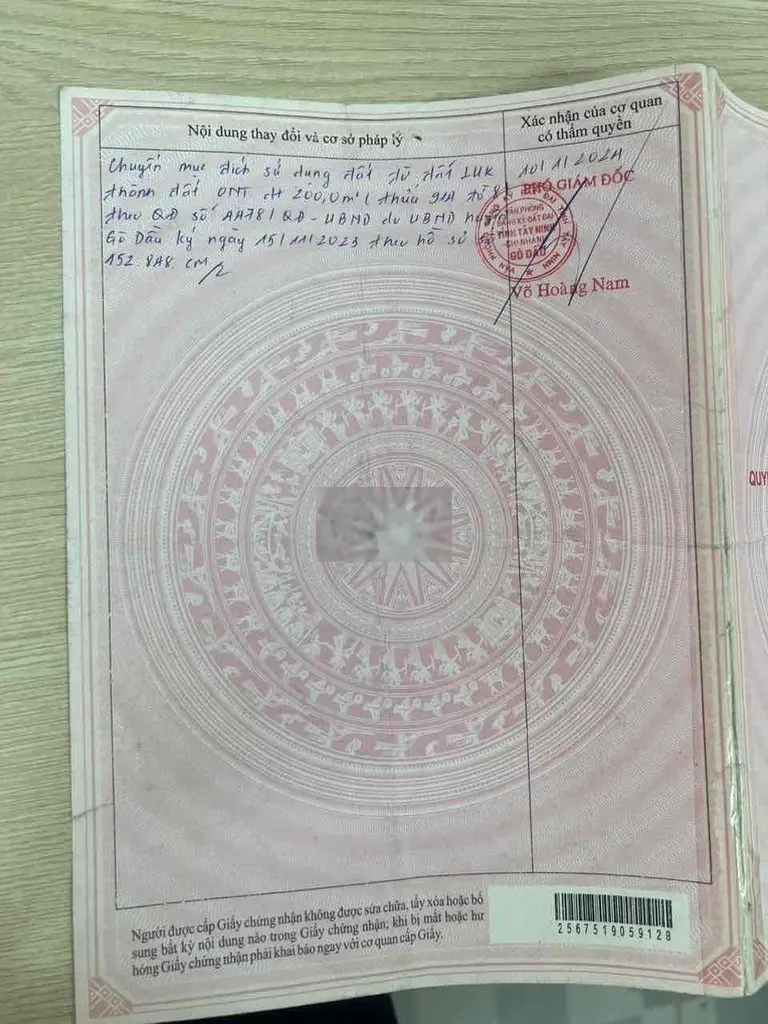 Nội dung thay đổi và cơ sở pháp lý
Xác nhận của cơ quan
có thẩm quyền
Chuyển mục đích sử dụng đất từ đất LUK
thành đất ONT dt 200,0m² (thửa
theo QĐ số QĐ-UBND do UBND huyện
Gò Dầu ký ngày 15/11/2023 theo hồ sơ số
10/1/2024
PHÓ GIÁM ĐỐC
VĂN PHÒNG
ĐĂNG KÝ ĐẤT ĐAI
TỈNH TÂY NINH
CHI NHÁNH
GÒ DẦU
Võ Hoàng Nam
QUY
Người được cấp Giấy chứng nhận không được sửa chữa, tẩy xóa hoặc bổ
sung bất kỳ nội dung nào trong Giấy chứng nhận; khi bị mất hoặc hư
hỏng Giấy chứng nhận phải khai báo ngay với cơ quan cấp Giấy.
2567519059128